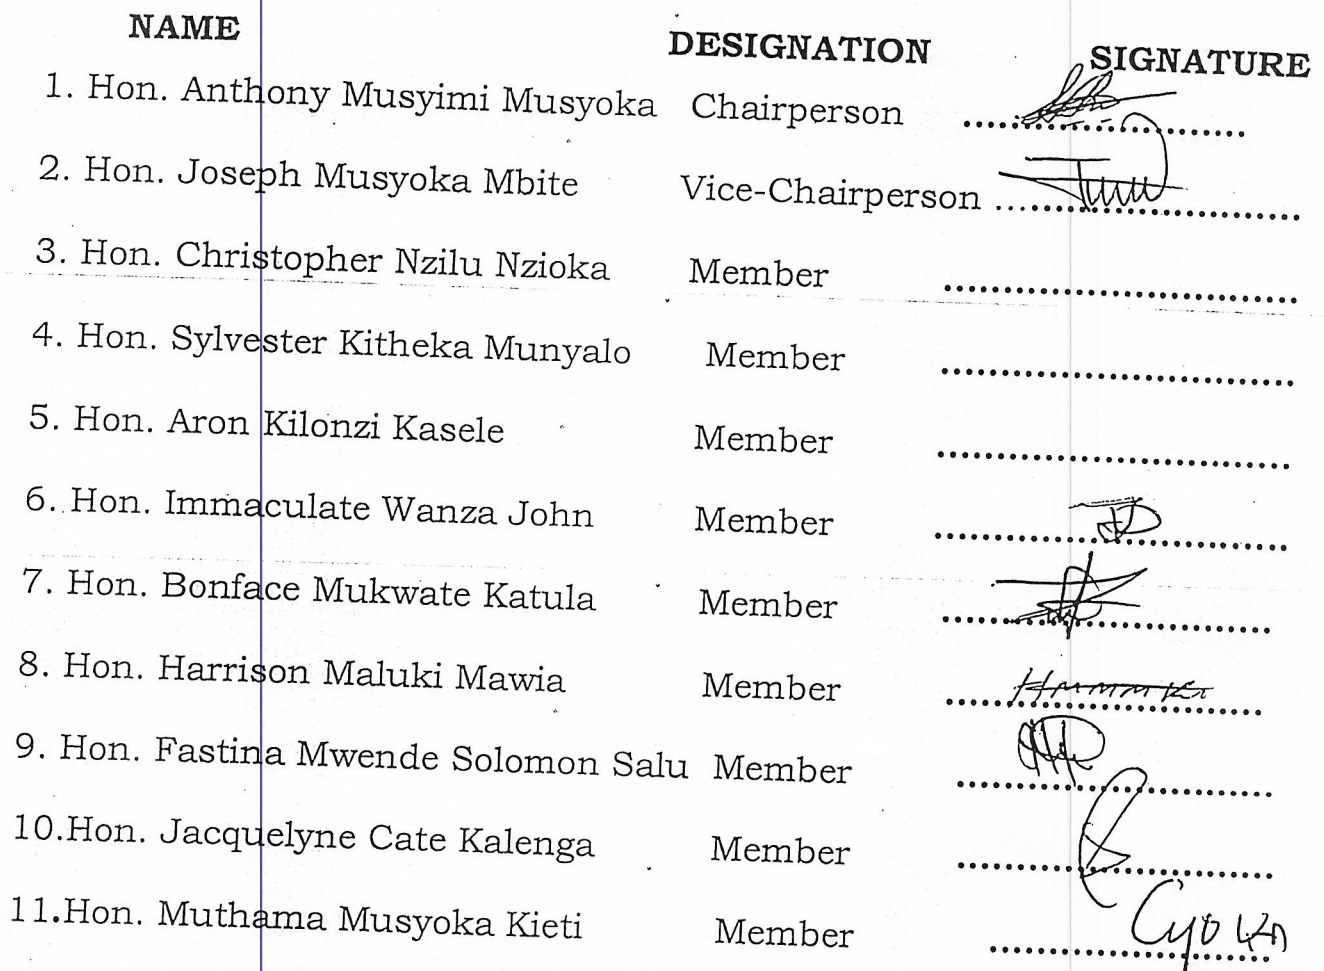 NAME DESIGNATION SIGNATURE
1. Hon. Anthony Musyimi Musyoka Chairperson ..............................
2. Hon. Joseph Musyoka Mbite Vice-Chairperson ..............................
3. Hon. Christopher Nzilu Nzioka Member ....................................
4. Hon. Sylvester Kitheka Munyalo Member ....................................
5. Hon. Aron Kilonzi Kasele Member ....................................
6. Hon. Immaculate Wanza John Member ....................................
7. Hon. Bonface Mukwate Katula Member .................................
8. Hon. Harrison Maluki Mawia Member ................................
9. Hon. Fastina Mwende Solomon Salu Member ................................
10.Hon. Jacquelyne Cate Kalenga Member ................................
11.Hon. Muthama Musyoka Kieti Member .............................